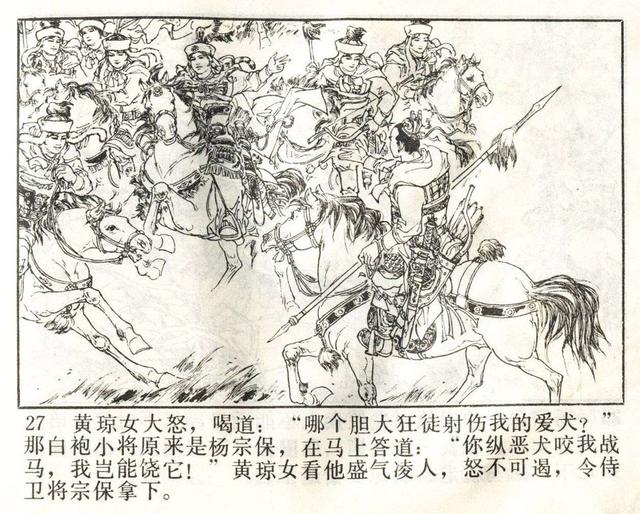 27 黄琼女大怒，喝道：“哪个胆大狂徒射伤我的爱犬？”
那白袍小将原来是杨宗保，在马上答道：“你纵恶犬咬我战
马，我岂能饶它！”黄琼女看他盛气凌人，怒不可遏，令侍
卫将宗保拿下。